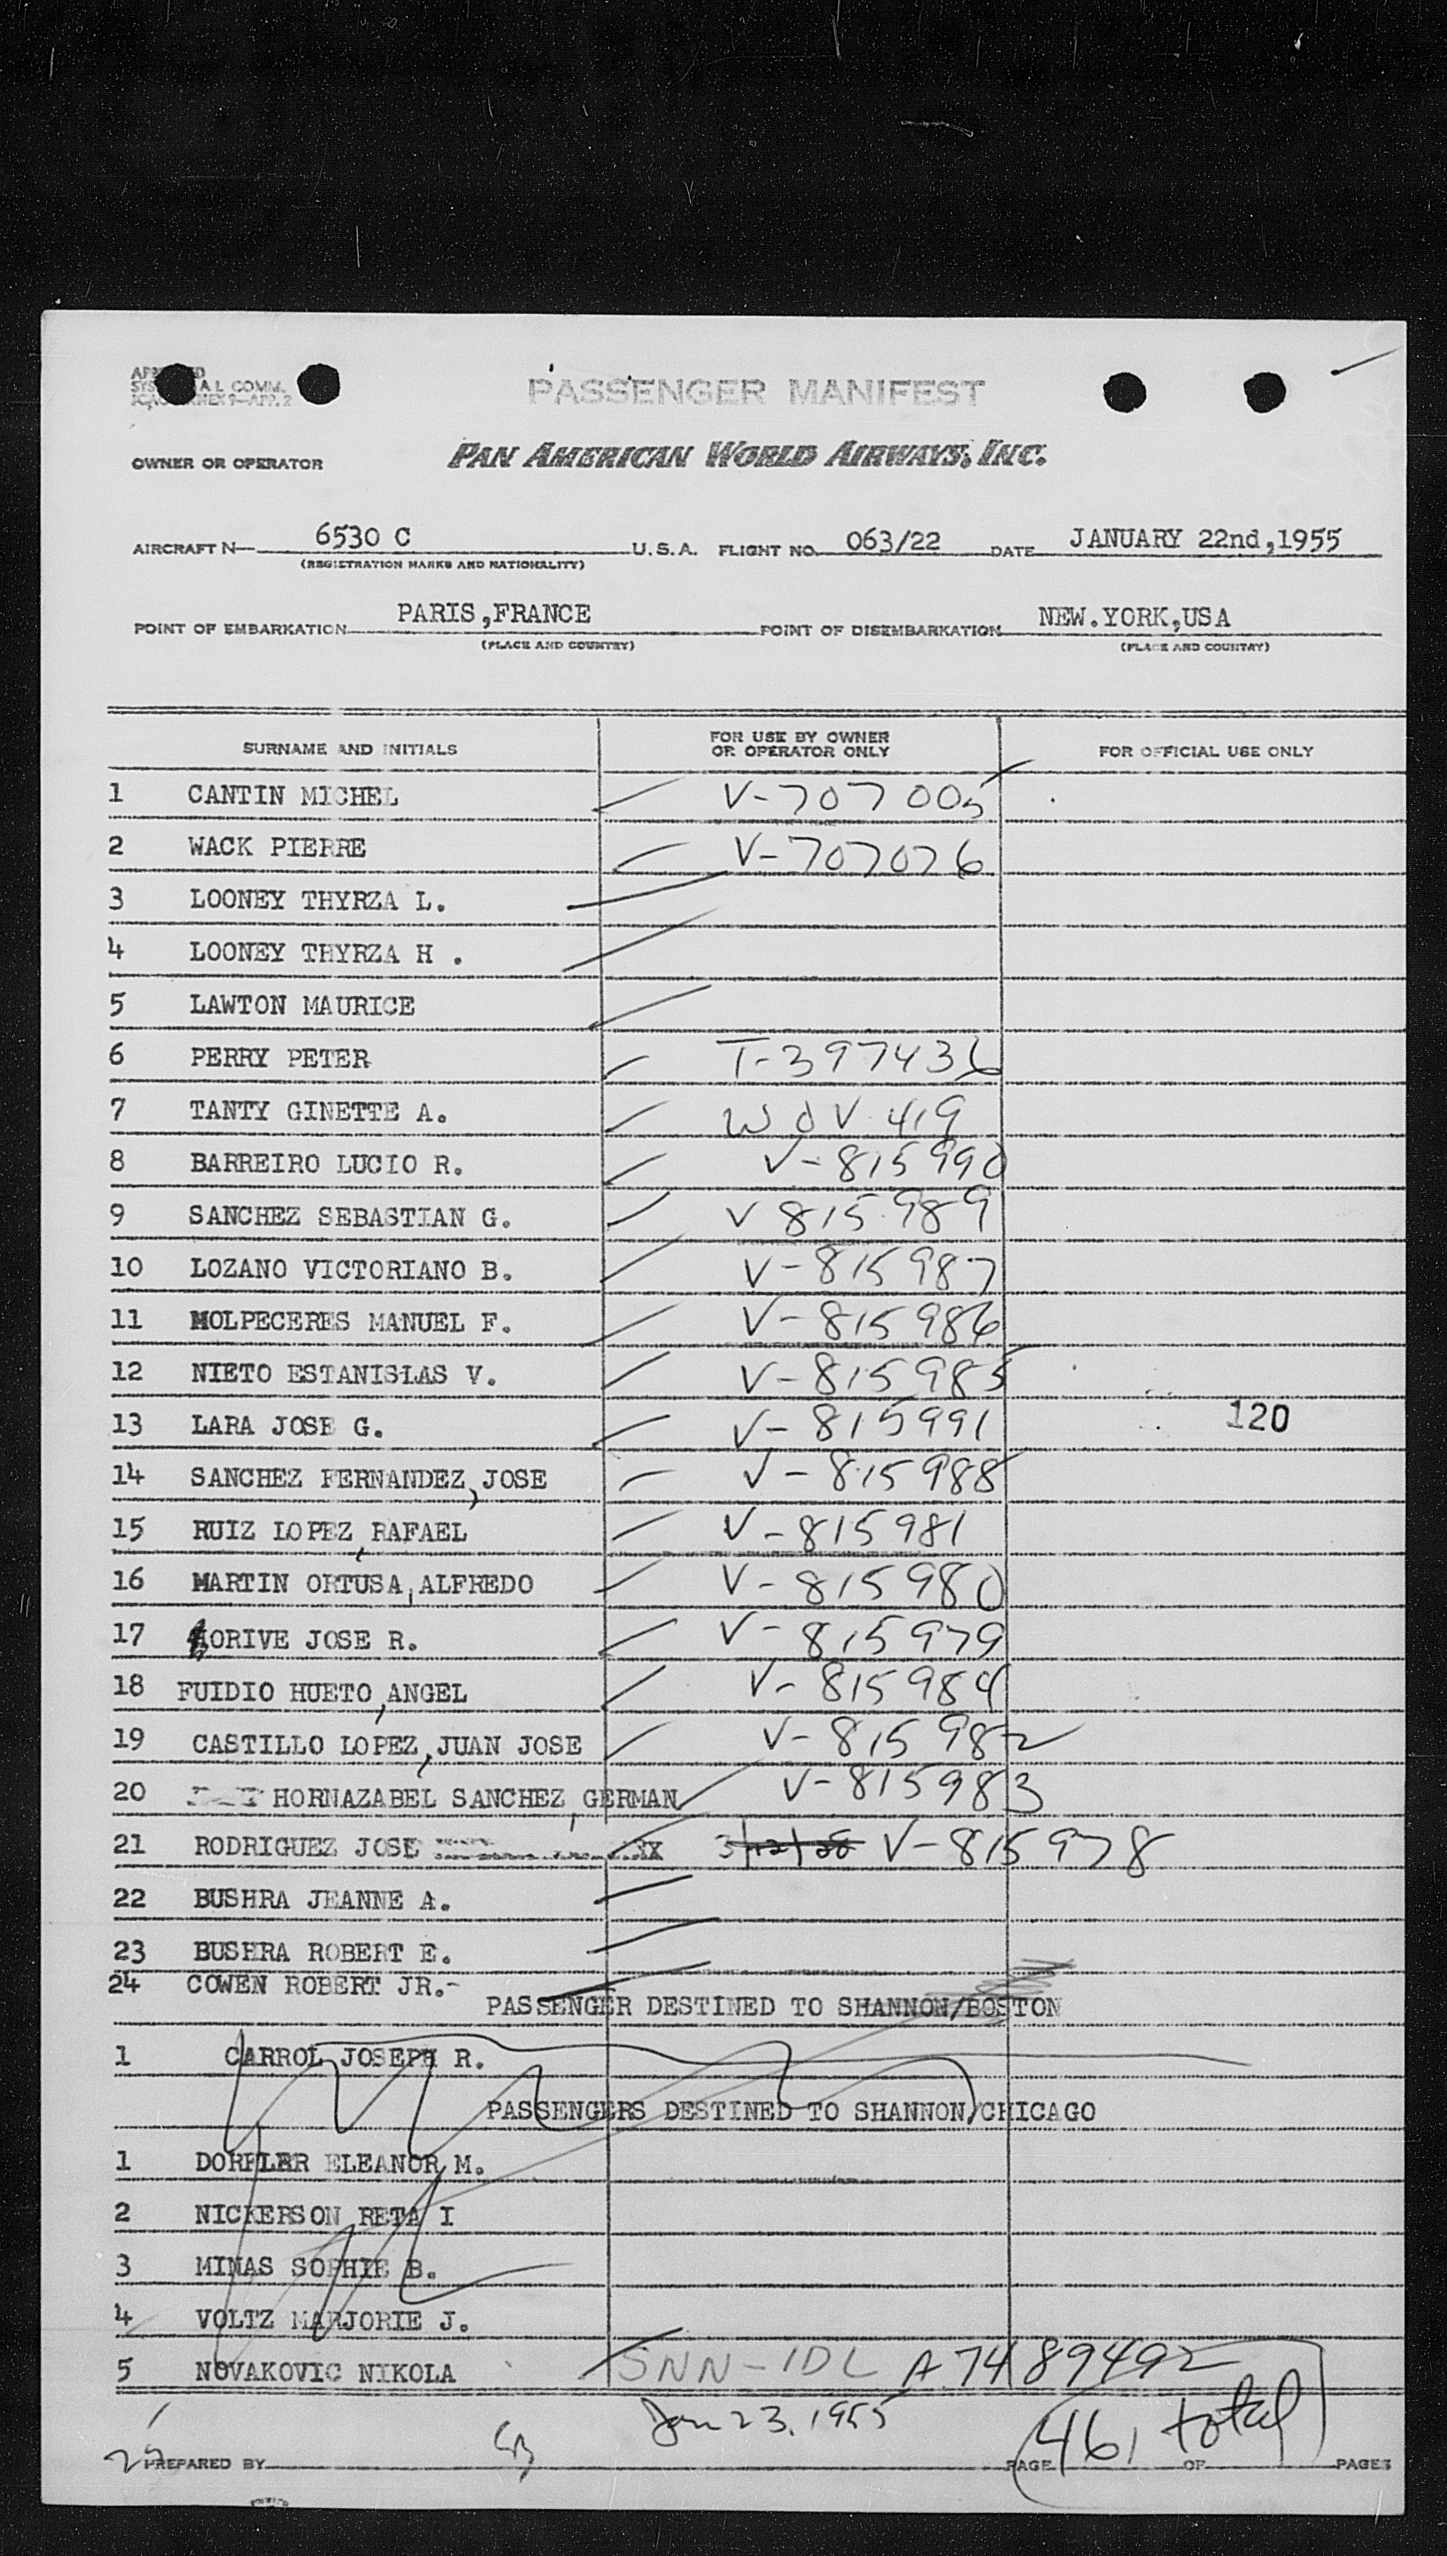 PASSENGER MANIFEST
OWNER OR OPERATOR PAN AMERICAN WORLD AIRWAYS, INC.
AIRCRAFT N— 6530 C U.S.A. FLIGHT NO. 063/22 DATE JANUARY 22nd,1955
(REGISTRATION MARKS AND NATIONALITY)
POINT OF EMBARKATION PARIS,FRANCE POINT OF DISEMBARKATION NEW.YORK,USA
(PLACE AND COUNTRY) (PLACE AND COUNTRY)
SURNAME AND INITIALS FOR USE BY OWNER OR OPERATOR ONLY FOR OFFICIAL USE ONLY
1 CANTIN MICHEL V-707005
2 WACK PIERRE V-707076
3 LOONEY THYRZA L.
4 LOONEY THYRZA H .
5 LAWTON MAURICE
6 PERRY PETER T-397436
7 TANTY GINETTE A. W d V 419
8 BARREIRO LUCIO R. V-815990
9 SANCHEZ SEBASTIAN G. V 815989
10 LOZANO VICTORIANO B. V-815987
11 MOLPECERES MANUEL F. V-815986
12 NIETO ESTANISLAS V. V-815985
13 LARA JOSE G. V-815991 120
14 SANCHEZ FERNANDEZ,JOSE V-815988
15 RUIZ LOPEZ,RAFAEL V-815981
16 MARTIN ORTUSA,ALFREDO V-815980
17 ORIVE JOSE R. V-815979
18 FUIDIO HUETO,ANGEL V-815984
19 CASTILLO LOPEZ,JUAN JOSE V-815982
20 HORNAZABEL SANCHEZ,GERMAN V-815983
21 RODRIGUEZ JOSE XX V-815978
22 BUSHRA JEANNE A.
23 BUSHRA ROBERT E.
24 COWEN ROBERT JR.-
PASSENGER DESTINED TO SHANNON/BOSTON
1 CARROL JOSEPH R.
PASSENGERS DESTINED TO SHANNON/CHICAGO
1 DORFLER ELEANOR M.
2 NICKERSON RETA I
3 MINAS SOPHIE B.
4 VOLTZ MARJORIE J.
5 NOVAKOVIC NIKOLA SNN-IDL A 7489492
Jan 23, 1955
PREPARED BY PAGE 46, total OF PAGES